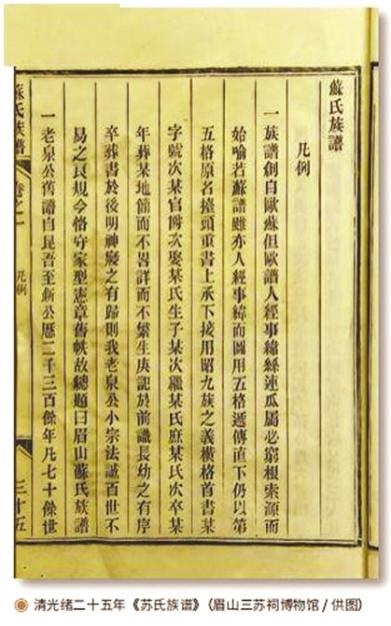 蘇氏族譜
凡例
一族譜創自歐蘇但歐譜人經事緯絲連瓜屬必窮根索源而
始喻若蘇譜雖亦人經事緯而圖用五格遞傳直下仍以第
五格原名擡頭重書上承下接用昭九族之義橫格首書某
字號次某官爵次娶某氏生子某次繼某氏庶某氏次卒某
年葬某地簡而不畧詳而不繁生庚記於前識長幼之有序
卒葬書於後明神凝之有歸則我老泉公小宗法誠百世不
易之良規今恪守家型憲章舊帙故總題曰眉山蘇氏族譜
一老泉公舊譜自昆吾至新公歷二千三百餘年凡七十餘世
蘇氏族譜
卷之一
凡例
三十五
清光绪二十五年《苏氏族谱》（眉山三苏祠博物馆 / 供图）